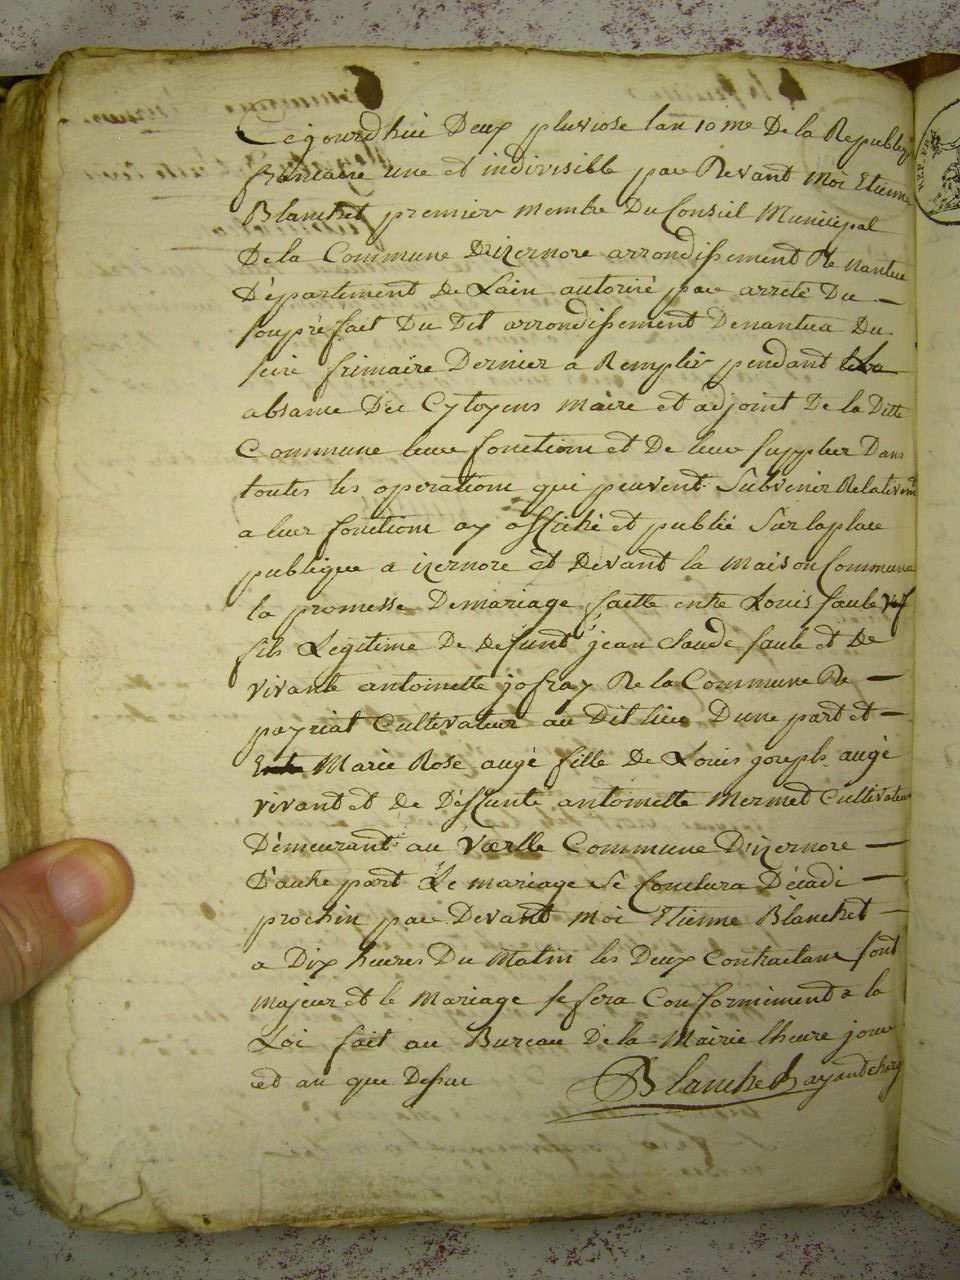 Cejourdhui Deux pluviose lan 10 me De la Republiq
francaise une et indivisible par Devant Moi Etienne
Blanchet premier membre Du Conseil Municipal
De la Commune Dizernore arrondissement De nantua
Département de Lain autorisé par arreté Du —
souprefait Du Dit arrondissement Denantua Du
seize frimaire Dernier a Remplir pendant
absance Des Cytoyens Maire et adjoint De la Ditte
Commune leur fonction et De leur Supplier Dans
toutes les operations qui peuvent Subvenir Relativemt
a leur fonctions ay affiché et publié Sur la place
publique a izernore et Devant la Maison Commune
la promesse Demariage faitte entre Louis faule
fils Légitime De defunt jean Claude faule et De
vivante antoinette jofray De la Commune De —
peyriat Cultivateur au Dit lieu D'une part et —
Marie Rose augé fille De Louis joseph augé
vivant et de Déffunte antoinette Mermet Cultivateur
Démeurant au Voerlle Commune Dizernore —
D'autre part Le mariage Se Conclura Décadi —
prochin par Devant Moi Etienne Blanchet —
a Dix heures Du Matin les Deux Contractans sont
majeur et le Mariage se fera Conformiment a la
Loi fait au Bureau De la Mairie lheure jour
et an que Dessus
Blanchet